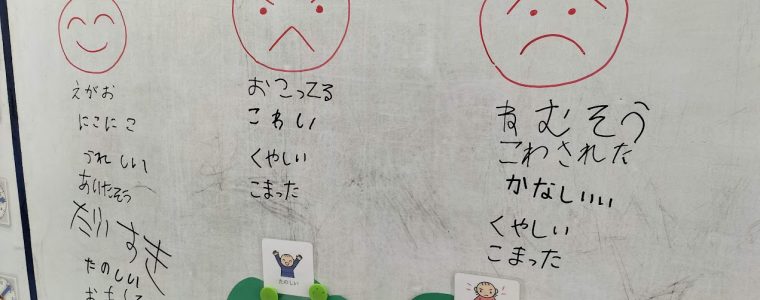 えがお
にこにこ
うれしいし
あいたそう
だいすき
たのしい
おこってる
こわい
くやしい
こまった
ねむそう
こわされた
かなしいい
くやしい
こまった
たのしい